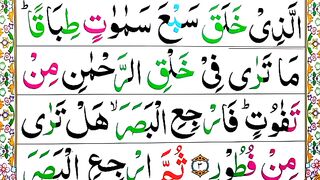 الَّذِیْ خَلَقَ سَبْعَ سَمٰوٰتٍ طِبَاقًاؕ
مَا تَرٰی فِیْ خَلْقِ الرَّحْمٰنِ مِنْ
تَفٰوُتٍؕ فَارْجِعِ الْبَصَرَۙ هَلْ تَرٰی
مِنْ فُطُوْرٍ ﴿۳﴾ ثُمَّ ارْجِعِ الْبَصَرَ